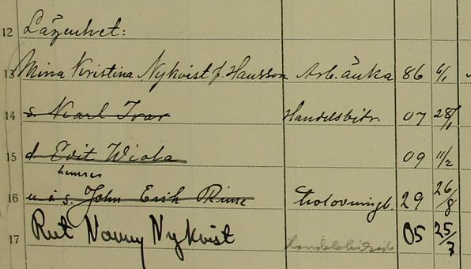 12 Lägenhet:
13 Mina Kristina Nykvist f. Hansson Arb. änka 86 6/1
14 s. Karl Ivar Handelsbitr. 07 28/1
15 d. Edit Wiola 09 11/2
hennes
16 u. ä. s. John Erik Rune 29 26/8
17 Rut Nanny Nykvist 05 25/7